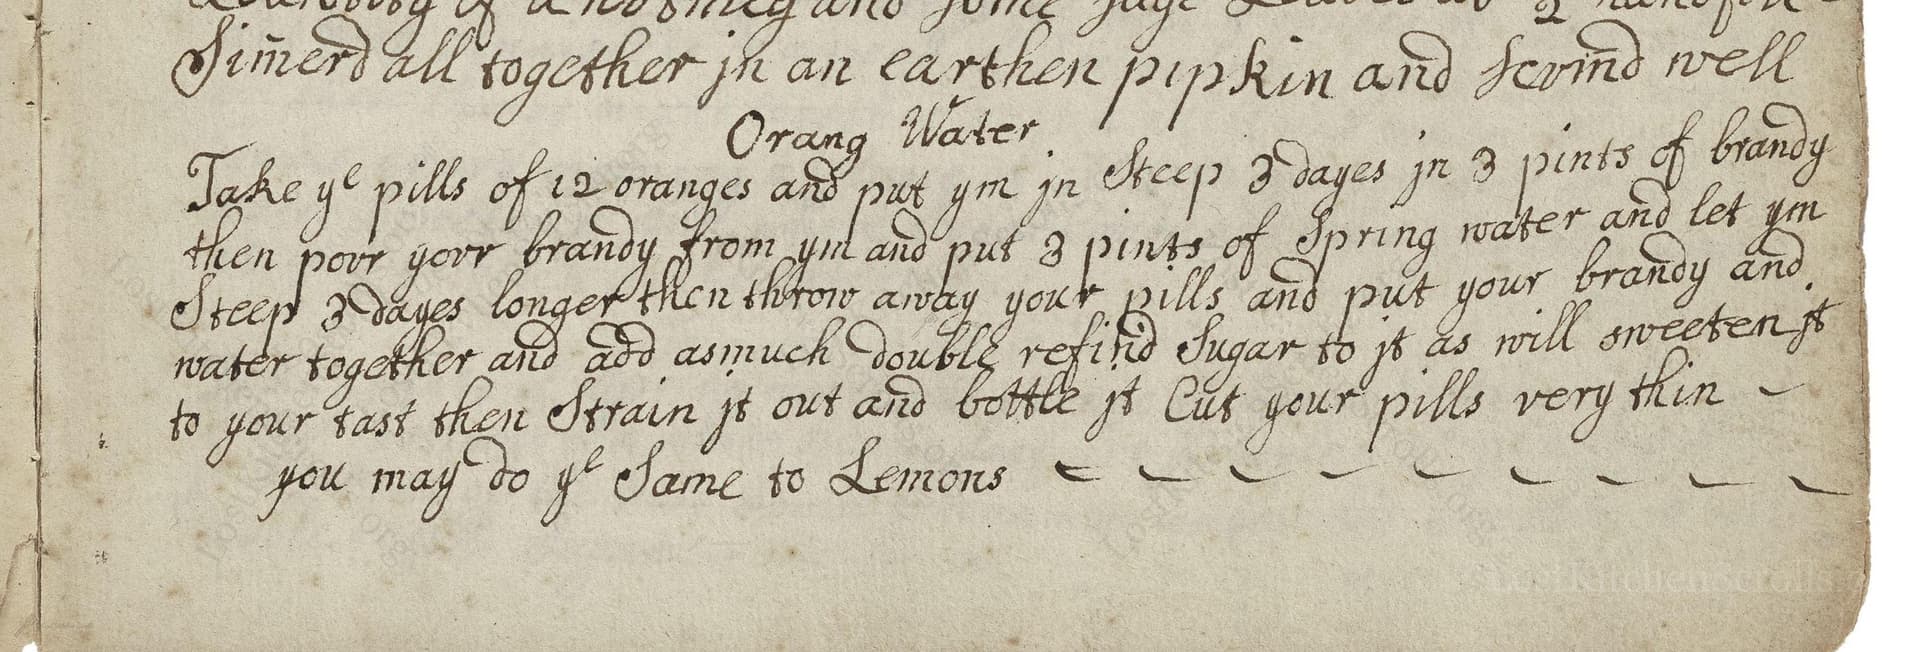 Quantity of a nutmeg and some sage Leaves as 2 handfull
Sim̄erd all together jn an earthen pipkin and scvm̄d well
Orang Water
Take yᵉ pills of 12 oranges and put ym jn Steep 3 dayes jn 3 pints of brandy
then povr yovr brandy from ym and put 3 pints of Spring water and let ym
Steep 3 dayes longer then throw away your pills and put your brandy and
water together and add asmuch double refind Sugar to jt as will sweeten jt
to your tast then Strain jt out and bottle jt Cut your pills very thin ~
you may do yᵉ Same to Lemons
LostKitchenScrolls